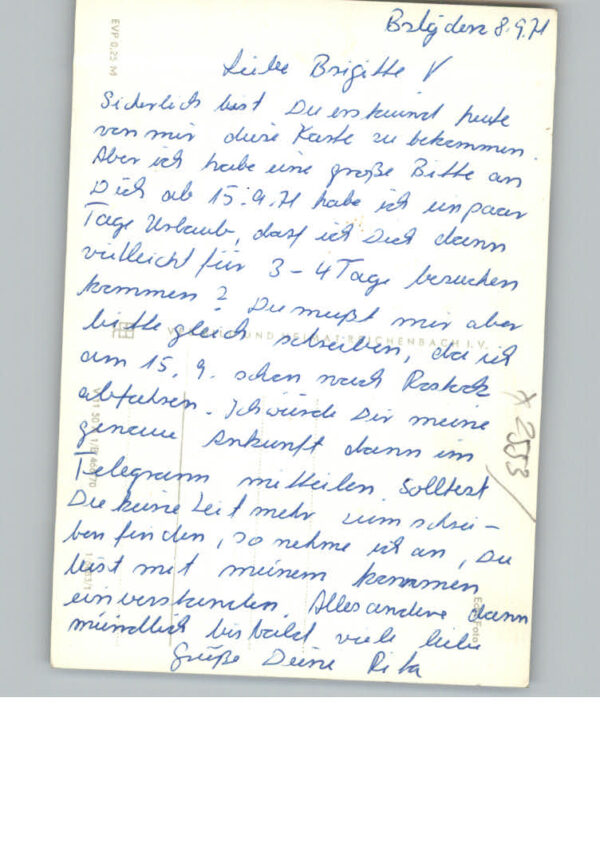 Bslg den 8.9.71
Liebe Brigitte !
Sicherlich bist Du erstaunt heute
von mir diese Karte zu bekommen.
Aber ich habe eine große Bitte an
Dich ab 15.9.71 habe ich ein paar
Tage Urlaub, darf ich Dich dann
vielleicht für 3-4 Tage besuchen
kommen? Du mußt mir aber
bitte gleich schreiben, da ich
am 15.9. schon nach Rostock
abfahren. Ich würde Dir meine
genaue Ankunft dann im
Telegramm mitteilen. Solltest
Du keine Zeit mehr zum schrei-
ben finden, so nehme ich an, Du
bist mit meinem kommen
einverstanden. Alles andere dann
mündlich bis bald viele liebe
Grüße Deine Rita
EVP 0,25 M
UND HEIMAT REICHENBACH I. V.
x 2553/
Foto